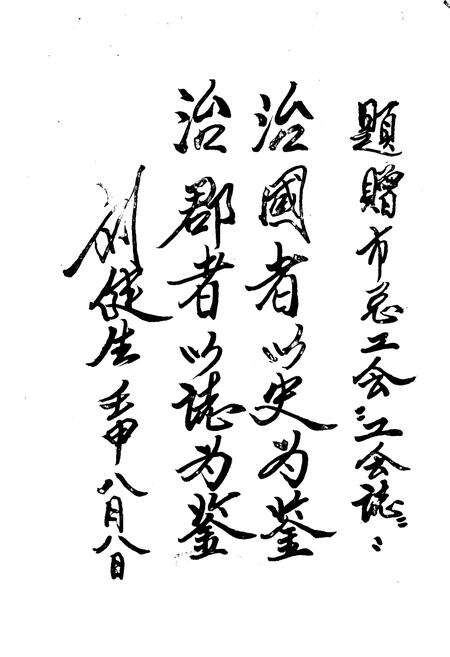 題贈市总工会"工会誌":
治國者以史为鉴
治郡者以誌为鉴
刘健生 壬申八月八日